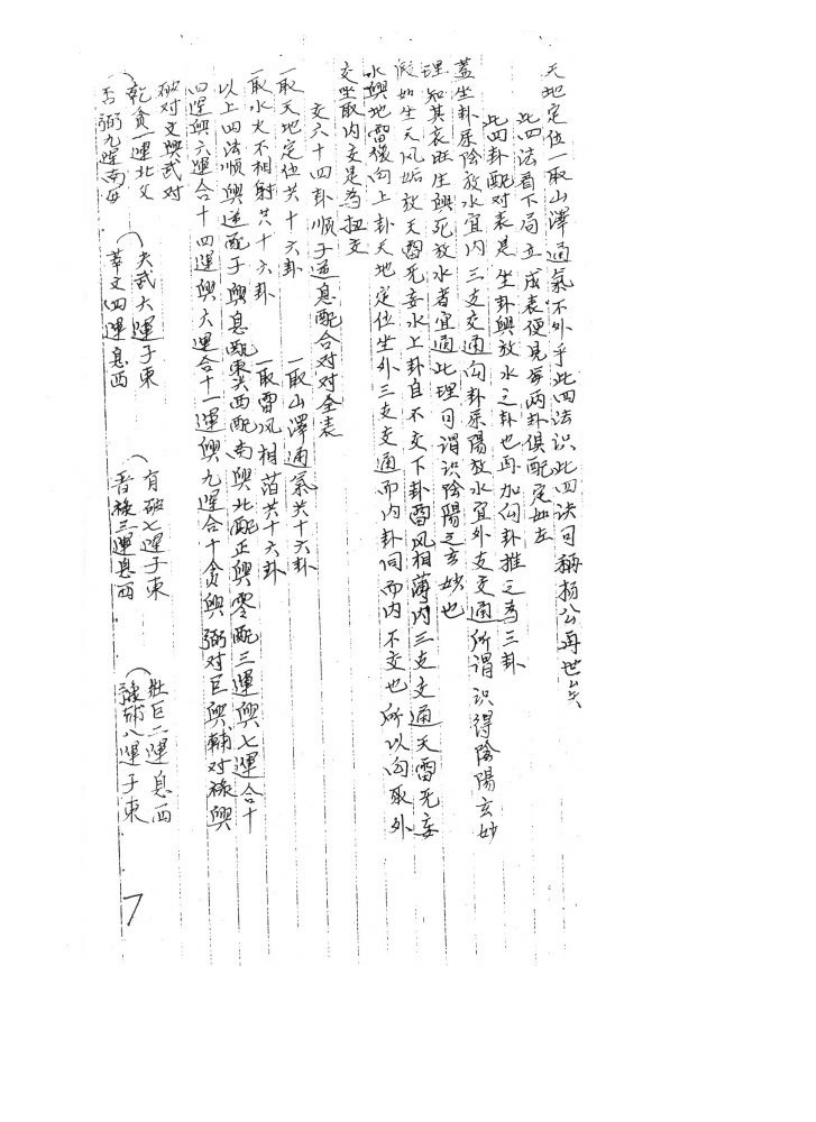 天地定位一取山澤通氣不外乎此四法识此四法可稱杨公再世矣
此四法看下局立成表便見每两卦俱配定如左
此四卦配对表是坐卦與放水之卦也再加向卦推之為三卦
蓋坐卦屬陰放水宜内三支交通向卦屬陽放水宜外支交通所謂识得陰陽玄妙
理知其衰旺生與死放水者宜通此理可謂识陰陽之玄妙也
假如坐天风姤放天雷无妄水上卦自不交下卦雷风相薄内三支交通天雷无妄
水與地雷復向上卦天地定位坐外三支交通而内卦同而内不交也所以向取外
交坐取内交是為扭交
交六十四卦顺子逆息配合对对全表
一取天地定位共十六卦
一取山澤通氣共十六卦
一取水火不相射共十六卦
一取雷风相薄共十六卦
以上四法顺與逆配子與息配東與西配南與北配正與零配三運與七運合十
四運與六運合十四運與六運合十一運與九運合十贪與弼对巨與輔对禄與
破对文與武对
(乾贪一運北父
否弼九運南母
(夬武六運子東
萃文四運息西
(有破七運子東
晋禄三運息西
(壯巨二運息西
豫輔八運子東
7